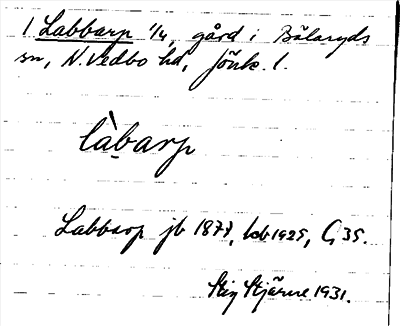 1. Labbarp 1/4, gård i Bälaryds
sn, N. Vedbo hd, Jönk. l.
làbarp
Labbarp jb 1877, kb 1925, G 35.
Stig Stjärne 1931.